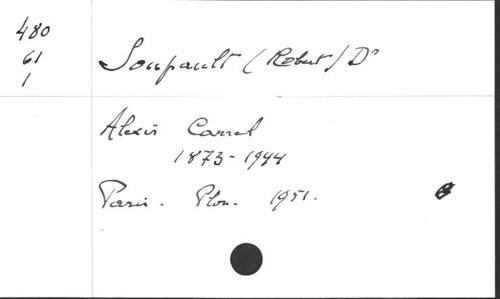 480
61
1
Soupault (Robert) Dr
Alexis Carrel
1873-1944
Paris. Plon. 1951.